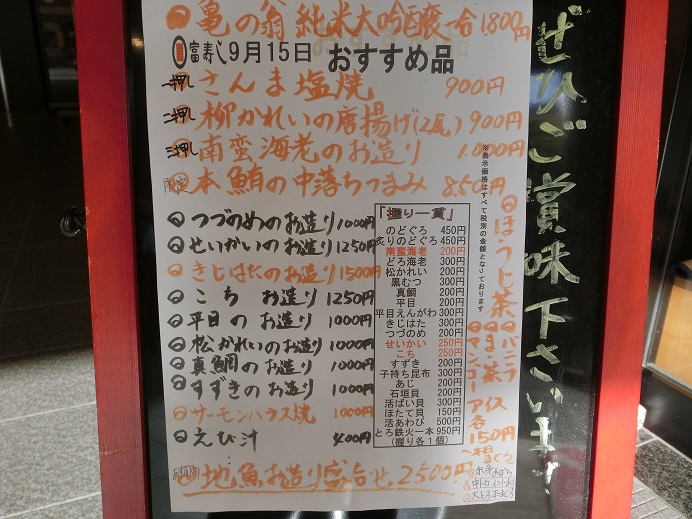 亀の翁 純米大吟醸一合1800円
富寿し 9月15日 おすすめ品
一押し さんま塩焼 900円
二押し 柳かれいの唐揚げ(2尾) 900円
三押し 南蛮海老のお造り 1.000円
限定 本鮪の中落ちつまみ 850円
つづのめのお造り 1000円
せいかいのお造り 1250円
きじはたのお造り 1500円
こち お造り 1250円
平目のお造り 1000円
松かれいのお造り 1000円
真鯛のお造り 1000円
すずきのお造り 1000円
サーモンハラス焼 1000円
えび汁 400円
地魚お造り盛合せ 2500円
「握り一貫」
のどぐろ 450円
炙りのどぐろ 450円
南蛮海老 200円
どろ海老 300円
松かれい 200円
黒むつ 300円
真鯛 200円
平目 200円
平目えんがわ 300円
きじはた 300円
つづのめ 200円
せいかい 250円
こち 250円
すずき 200円
子持ち昆布 300円
あじ 200円
石垣貝 200円
活ばい貝 300円
ほたて貝 150円
活あわび 500円
とろ鉄火一本 950円
(握り各1個)
※表示価格はすべて税別の金額となっております
ほうじ茶
バニラ
まっ茶
マンゴー
アイス
各
150円
ぜひご賞味下さいませ